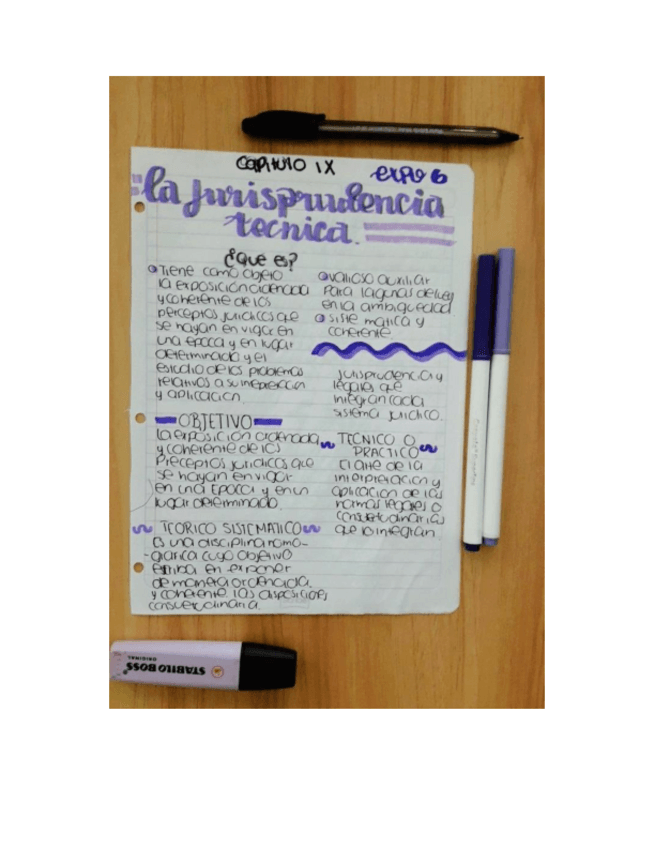 CAPITULO IX
EXPO 6
la jurisprudencia
tecnica.
¿Que es?
Tiene como objeto
la exposición ordenada
y coherente de los
perceptos juridicos que
se hayan en vigor en
una epoca y en lugar
determinado y el
estudio de los problemas
relativos a su
y aplicacion.
valioso auxiliar
para lagunas de ley
en la ambiguedad
sistematica y
coherente.
OBJETIVO
la exposición ordenada
y coherente de los
preceptos juridicos que
se hayan en vigor
en una epoca y en un
lugar determinado.
TEORICO SISTEMATICO
Es una disciplina nomo-
-grafica cuyo objetivo
estriba en exponer
de manera ordenada
y coherente. las disposiciones
consuetudinaria.
jurisprudencia y
legales que
integran cada
sistema juridico.
TECNICO O
PRACTICO
El arte de la
interpretacion y
aplicacion de las
normas legales o
consuetudinarias
que lo integran
STABILO BOSS
ORIGINAL